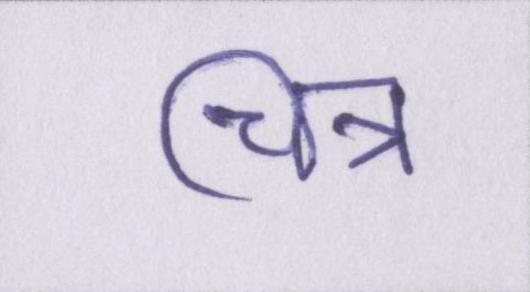 चित्र